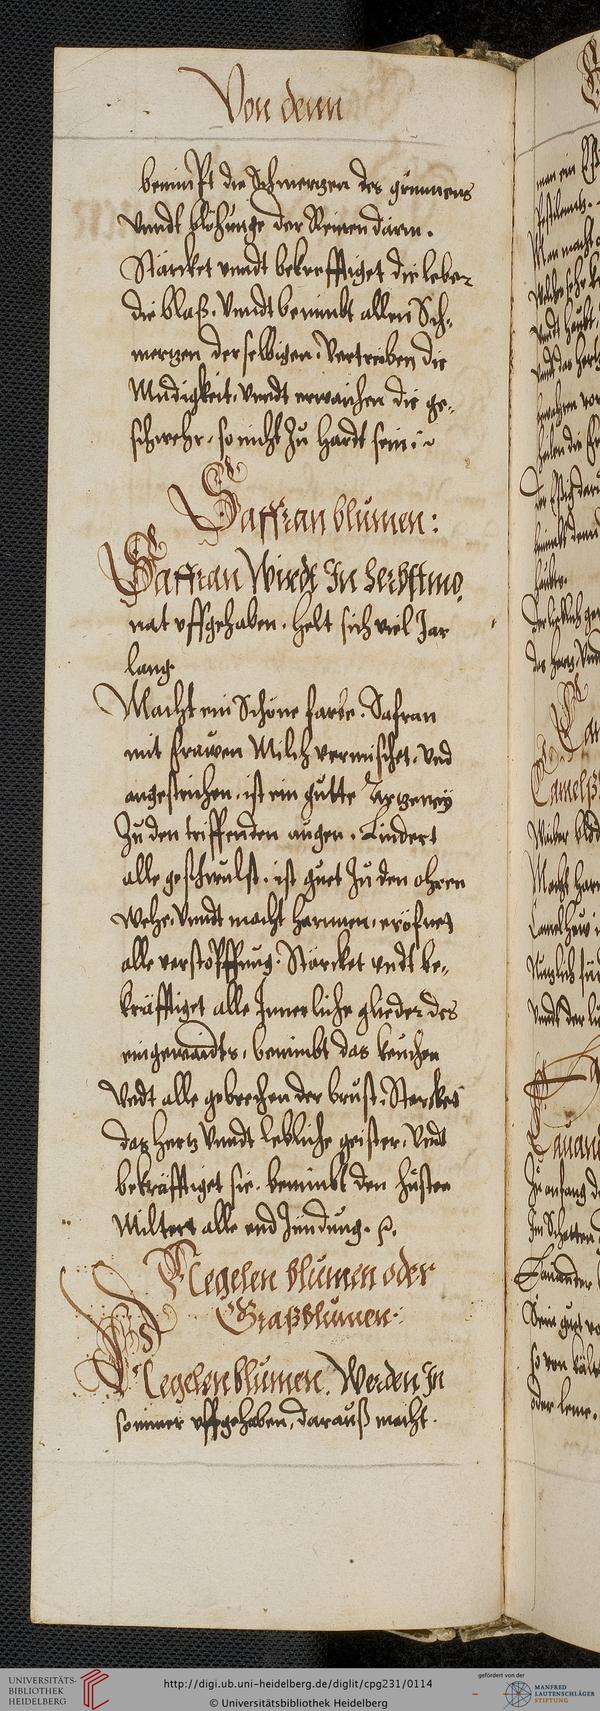 Von denn
benimpt die Schmertzen des grimmens
vnndt blöhunge der Riemen därm.
Stärcket vnndt bekrefftiget die leber
die blaß. Vnndt benimbt allen Sch-
mertzen derselbigen. Vertreiben die
Mudigkeit. Vnndt erwaichen die ge-
schwehr. so nicht Zu hardt sein.
Saffran blumen:
Saffran Wirdt In herbstmo,
nat vffgehaben. helt sich viel Jar
lang
Macht ein Schöne farbe. Safran
mit frawen Milch vermischet. vnd
angestrichen. ist ein gutte Artzeney
Zu den trieffenden augen. Lindert
alle geschwulst. ist guet Zu den ohren
wehe. Vnndt macht harnnen. eröfnet
alle verstopffnng. Stärcket vndt be-
kräfftiget alle Innerliche glieder des
eingewaidts, benimbt das keuchen
Vndt alle gebrechen der brust. Stercket
das hertz Vnndt lebliche geister. Vndt
bekräfftiget sie. benimbt den husten
Miltert alle end Zundung.
Negelen blumen oder
Graßblumen:
Negelen blumen. Werden In
sommer vffgehaben, darauß macht.
man ein
Man macht
Camelß
Nutzlich
Zu anfang
Im Schatten
oder leme.
UNIVERSITÄTS-
BIBLIOTHEK
HEIDELBERG
http://digi.ub.uni-heidelberg.de/diglit/cpg231/0114
© Universitätsbibliothek Heidelberg
gefördert von der
MANFRED
LAUTENSCHLÄGER
STIFTUNG